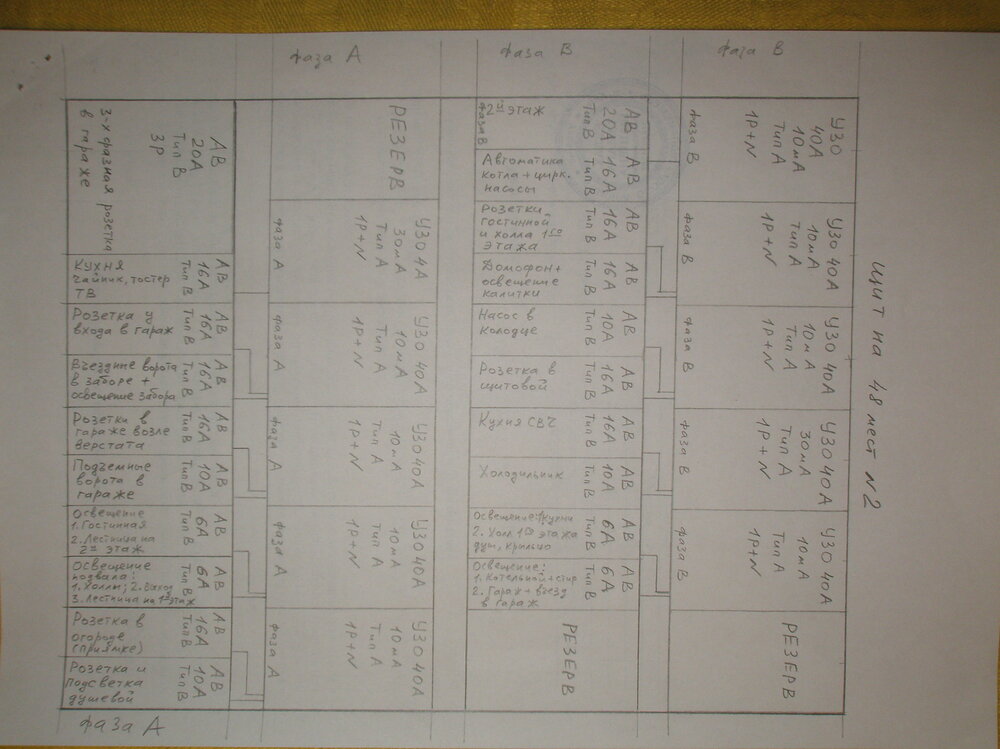 Щит на 48 мест №2
фаза А
фаза В
фаза В
УЗО
40А
10мА
Тип А
1P+N
фаза В
УЗО 40А
10мА
Тип А
1P+N
фаза В
УЗО 40А
10мА
Тип А
1P+N
фаза В
УЗО 40А
30мА
Тип А
1P+N
фаза В
УЗО 40А
10мА
Тип А
1P+N
фаза В
РЕЗЕРВ
АВ
20А
Тип В
2й этаж
фаза В
АВ
16А
Тип В
Автоматика
котла + цирк.
насосы
АВ
16А
Тип В
Розетки
гостинной
и холла 1го
этажа
АВ
16А
Тип В
Домофон +
освещение
калитки
АВ
10А
Тип В
Насос в
колодце
АВ
16А
Тип В
Розетка в
щитовой
АВ
16А
Тип В
Кухня СВЧ
АВ
10А
Тип В
Холодильник
АВ
6А
Тип В
Освещение: 1.Кухни
2. Холл 1го этажа
душ, крыльцо
АВ
6А
Тип В
Освещение:
1. Котельной + стир
2. Гараж + въезд
в гараж
РЕЗЕРВ
РЕЗЕРВ
УЗО 4А
30мА
Тип А
1P+N
фаза А
УЗО 40А
10мА
Тип А
1P+N
фаза А
УЗО 40А
10мА
Тип А
1P+N
фаза А
УЗО 40А
10мА
Тип А
1P+N
фаза А
УЗО 40А
10мА
Тип А
1P+N
фаза А
АВ
20А
Тип В
3P
3-х фазная розетка
в гараже
АВ
16А
Тип В
Кухня
чайник, тостер
ТВ
АВ
16А
Тип В
Розетка у
входа в гараж
АВ
16А
Тип В
Въездные ворота
в заборе +
освещение забора
АВ
16А
Тип В
Розетки в
гараже возле
верстата
АВ
10А
Тип В
Подъемные
ворота в
гараже
АВ
6А
Тип В
Освещение
1. Гостинная
2. Лестница на
2й этаж
АВ
6А
Тип В
Освещение
подвала:
1. Холлы; 2. Выход
3. Лестница на 1й этаж
АВ
16А
Тип В
Розетка в
огороде
(приямке)
АВ
10А
Тип В
Розетка и
подсветка
душевой
фаза А